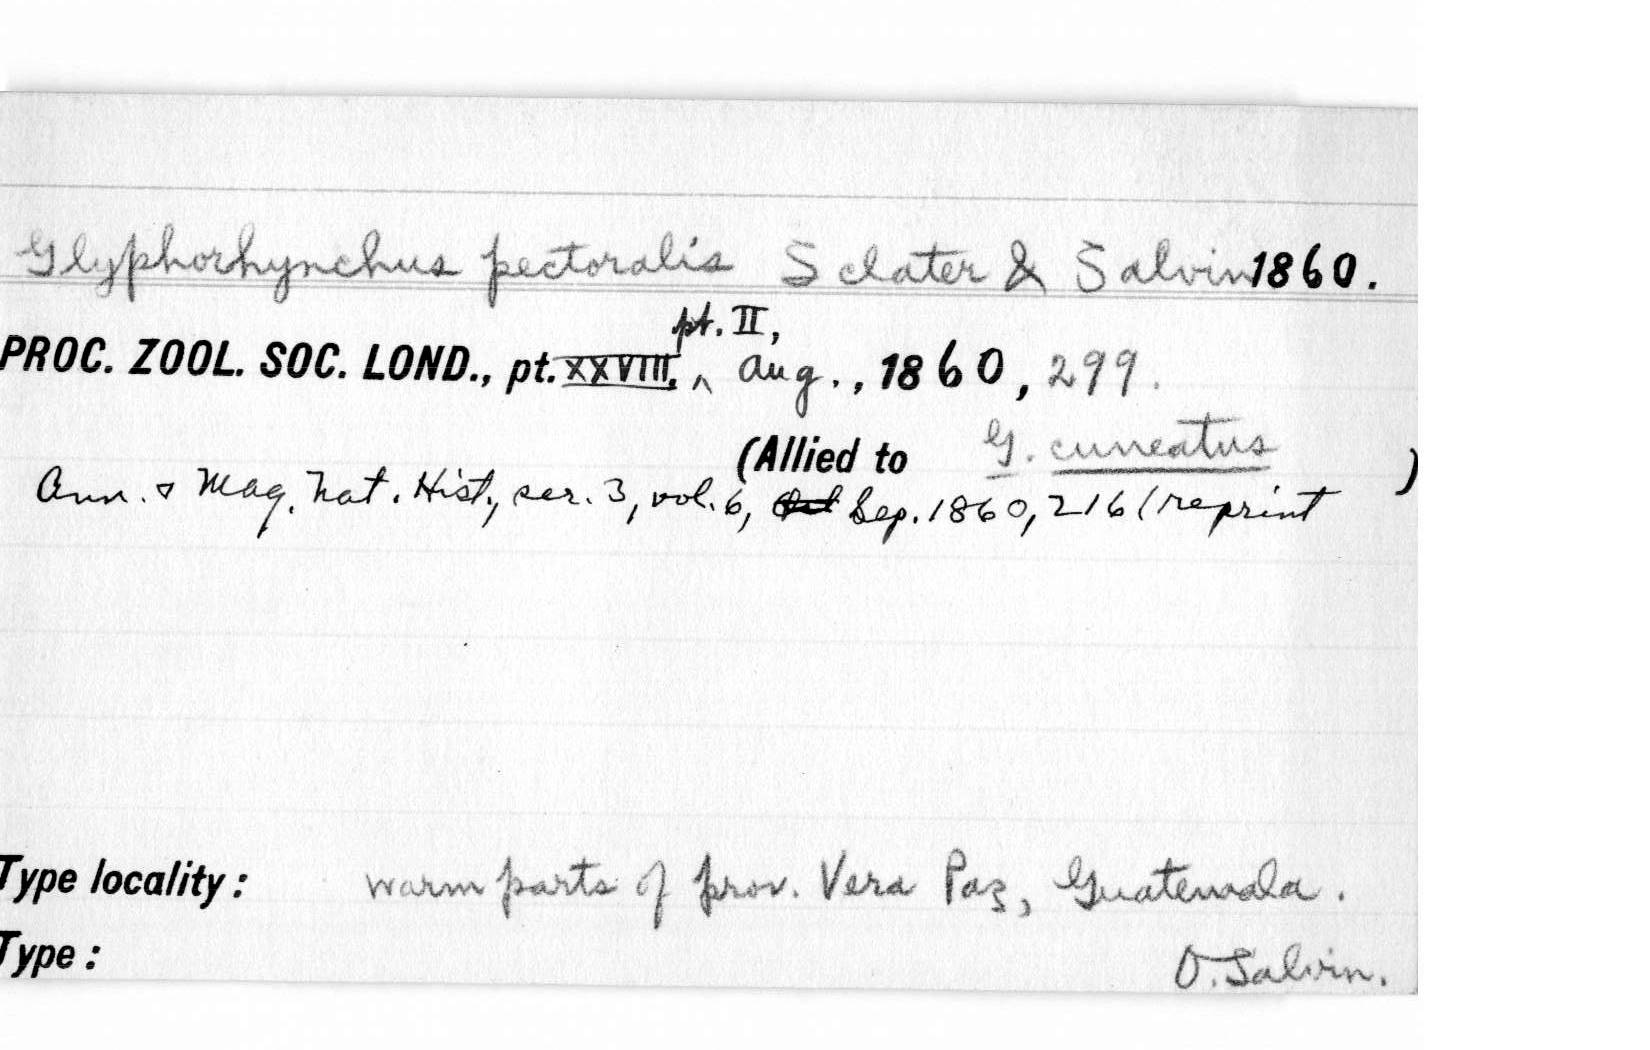 Glyphorhynchus pectoralis Sclater & Salvin 1860.
pt. II,
PROC. ZOOL. SOC. LOND., pt. XXVIII, ^ Aug., 1860, 299.
(Allied to G. cuneatus )
Ann. & Mag. Nat. Hist., ser. 3, vol. 6, Sep. 1860, 216 (reprint
Type locality: warm parts of prov. Vera Paz, Guatemala.
Type: O. Salvin.